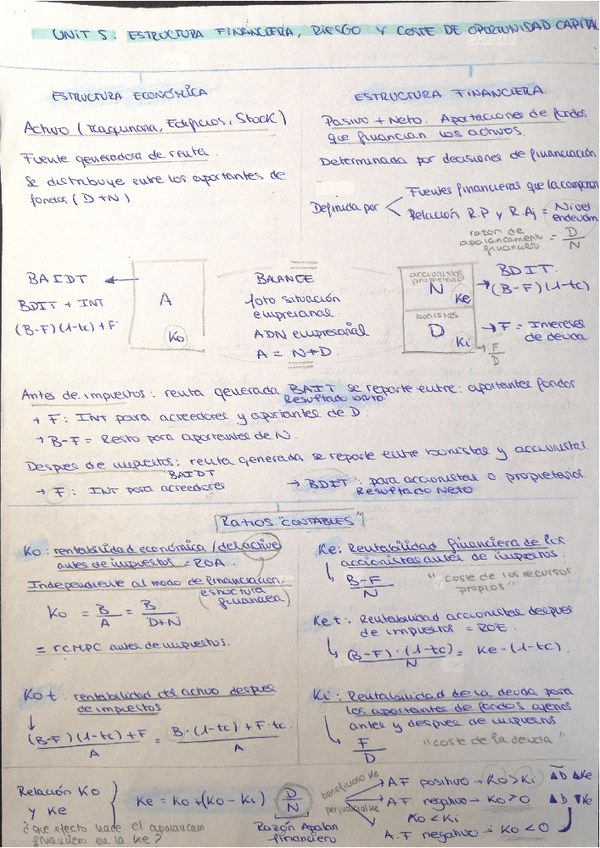 UNIT 5. ESTRUCTURA FINANCIERA, RIESGO Y COSTE DE OPORTUNIDAD CAPITAL
ESTRUCTURA ECONÓMICA
Activo (Maquinaria, Edificios, Stock)
Fuente generadora de renta.
Se distribuye entre los aportantes de
fondos (D+N)
ESTRUCTURA FINANCIERA.
Pasivo + Neto. Aportaciones de fondos
que financian los activos.
Determinada por decisiones de financiación
Definida por
Fuentes financieras que la componen
Relación R.P y R.Aj = Nivel
endeudam
razón de
apalancamento
financiero = D/N
BAIDT
BDIT + INT
(B-F)(1-tc) + F
A
Ko
BALANCE
foto situación
empresarial
ADN empresarial
A = N+D
accionistas
propietarios
N Ke
bonistas
D Ki
BDIT
→ (B-F)(1-tc)
→ F = Intereses
de deuda
→ F/D
Antes de impuestos: renta generada BAIT se reporte entre: aportantes fondos
Resultado bruto
→ F: INT para acreedores y aportantes de D.
→ B-F = Resto para aportantes de N.
Despues de impuestos: renta generada se reporte entre bonistas y accionistas
BAIDT
→ F: INT para acreedores
→ BDIT: para accionistas o propietarios
Resultado Neto
Ratios "CONTABLES"
Ko: rentabilidad económica / del activo
antes de impuestos = ROA.
Independiente al modo de financiación
(estructura
financiera)
Ko = B/A = B/D+N
= rCMPC antes de impuestos.
Kot: rentabilidad del activo despues
de impuestos
(B-F)(1-tc)+F / A = B·(1-tc)+F·tc / A
Ke: Rentabilidad financiera de los
accionistas antes de impuestos.
B-F / N
"coste de los recursos
propios"
Ket: Rentabilidad accionistas despues
de impuestos = ROE.
(B-F)·(1-tc) / N = Ke·(1-tc).
Ki: Rentabilidad de la deuda para
los aportantes de fondos ajenos
antes y despues de impuestos
F/D
"coste de la deuda"
Relación Ko
y Ke
¿que efecto hace el apalancam
financiero en la Ke?
Ke = Ko + (Ko - Ki) D/N
Razón Apalan
financiero
beneficioso Ke
perjudicial Ke
A.F positivo → Ko > Ki ▲D ▲Ke
A.F. negativo → Ko > 0
Ko < Ki
A.F negativo → Ko < 0
▲D ▼Ke